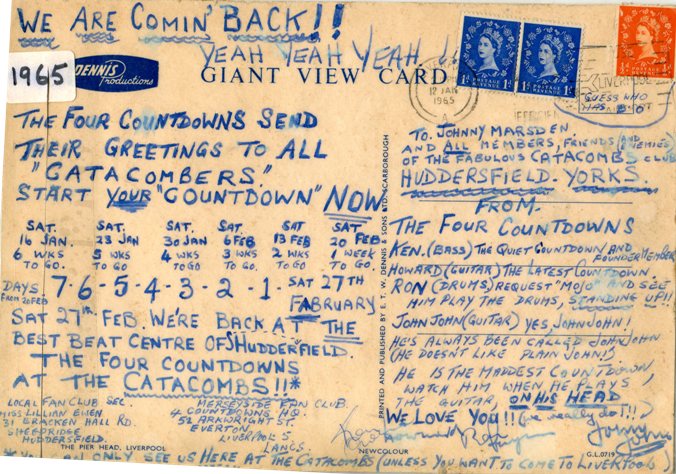 WE ARE COMIN' BACK!!
YEAH YEAH YEAH
1965
DENNIS
Productions
GIANT VIEW CARD
12 JAN
1965
LIVERPOOL
GUESS WHO
HAS B.O
THE FOUR COUNTDOWNS SEND
THEIR GREETINGS TO ALL
"CATACOMBERS."
START YOUR "COUNTDOWN" NOW
SAT. SAT. SAT. SAT. SAT. SAT.
16 JAN. 23 JAN 30 JAN 6 FEB 13 FEB 20 FEB
6 WKS 5 WKS 4 WKS 3 WKS 2 WKS 1 WEEK
TO GO. TO GO. TO GO TO GO. TO GO. TO GO.
DAYS 7-6-5-4-3-2-1- SAT 27TH
FROM 20 FEB FABRUARY
SAT 27TH FEB. WE'RE BACK AT THE
BEST BEAT CENTRE OF HUDDERSFIELD.
THE FOUR COUNTDOWNS
AT THE CATACOMBS!!*
LOCAL FAN CLUB SEC.
MISS LILLIAN EWEN
31 BRACKEN HALL RD.
SHEEPRIDGE
HUDDERSFIELD.
MERSEYSIDE FAN CLUB.
4 COUNTDOWNS HQ.
52 ARKWRIGHT ST.
EVERTON
LIVERPOOL 5
LANCS.
THE PIER HEAD, LIVERPOOL
NEWCOLOUR
G.L.0719
ONLY SEE US HERE AT THE CATACOMBS (UNLESS YOU WANT TO COME TO LIVERPOOL)
PRINTED AND PUBLISHED BY E. T. W. DENNIS & SONS LTD. SCARBOROUGH
TO. JOHNNY MARSDEN
AND ALL MEMBERS, FRIENDS (AND ENEMIES)
OF THE FABULOUS CATACOMBS CLUB
HUDDERSFIELD. YORKS.
FROM-
THE FOUR COUNTDOWNS
KEN. (BASS) THE QUIET COUNTDOWN AND FOUNDER MEMBER
HOWARD (GUITAR) THE LATEST COUNTDOWN.
RON (DRUMS) REQUEST "MOJO" AND SEE
HIM PLAY THE DRUMS, STANDING UP!!
JOHN JOHN (GUITAR) YES, JOHN JOHN!
HE'S ALWAYS BEEN CALLED JOHN JOHN
(HE DOESN'T LIKE PLAIN JOHN!)
HE IS THE MADDEST COUNTDOWN,
WATCH HIM WHEN HE PLAYS,
THE GUITAR, ON HIS HEAD
WE LOVE YOU!! (we really do!!)
Ken Howard Ron
Johnny
John